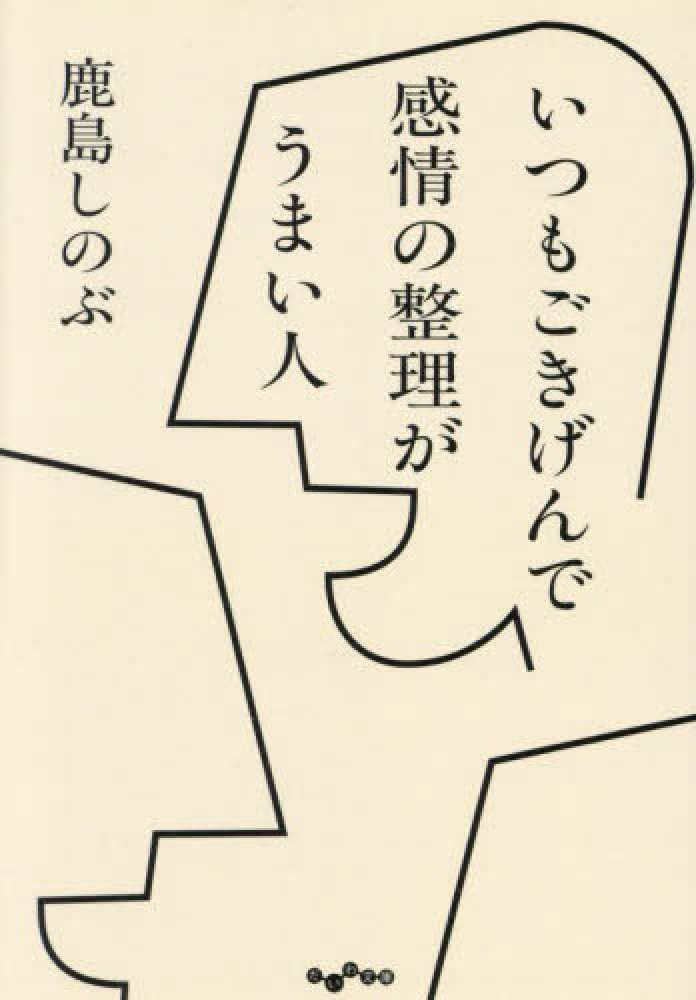 いつもごきげんで
感情の整理が
うまい人
鹿島しのぶ
だいわ文庫